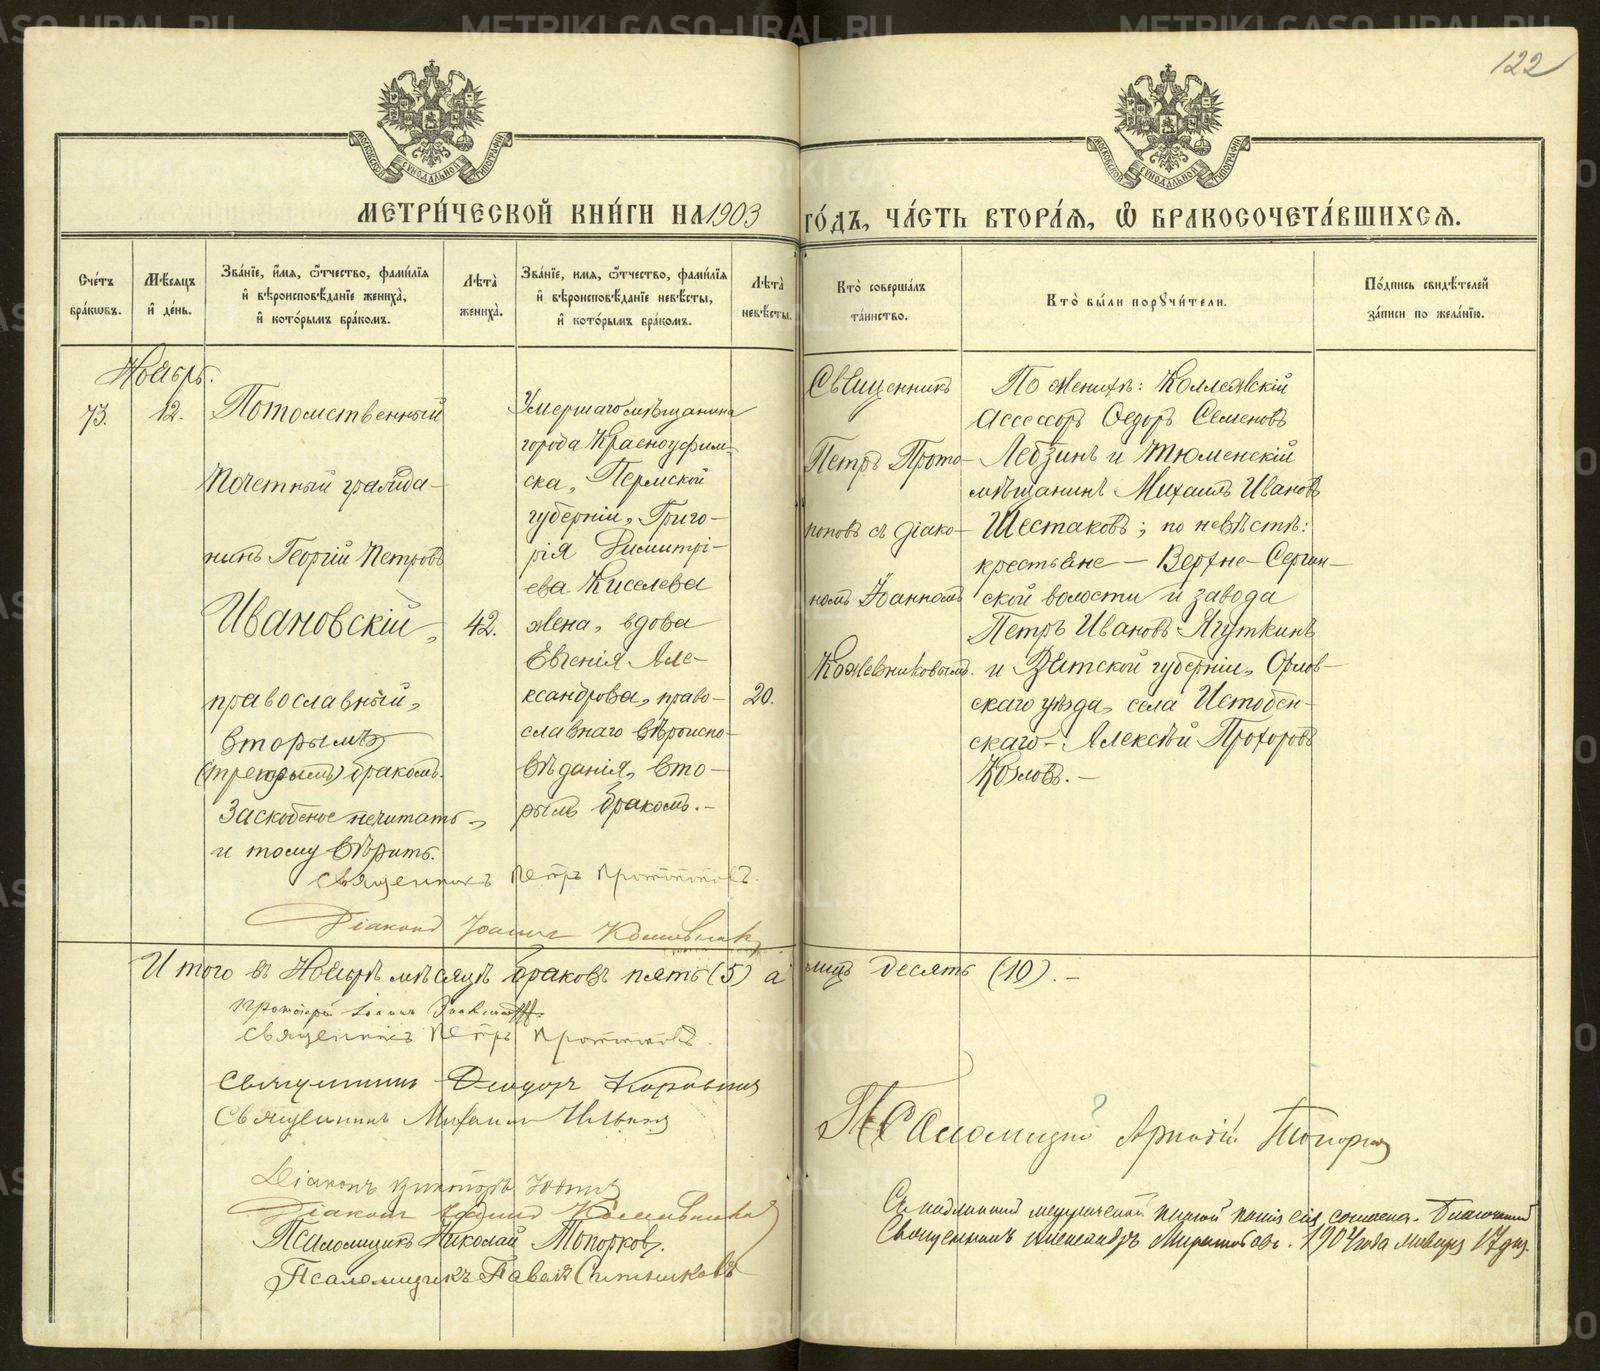 122
МОСКОВСКОЙ СѴНОДАЛЬНОЙ ТИПОГРАФІИ
МОСКОВСКОЙ СѴНОДАЛЬНОЙ ТИПОГРАФІИ
МЕТРИ́ЧЕСКОЙ КНИ́ГИ НА 1903 ГО́ДЪ, ЧА́СТЬ ВТОРА́Ѧ, Ѽ БРАКОСОЧЕТА́ВШИХСѦ.
Сче́тъ бра́кѡвъ.
Мѣ́сяцъ и҆ де́нь.
Зва́нїе, и҆́мѧ, ѻ҆́тчество, фами́лїѧ и҆ вѣроисповѣ́данїе жениха̀, и҆ кото́рымъ бра́комъ.
Лѣ́та жениха̀.
Зва́нїе, и́мѧ, ѻ҆́тчество, фами́лїѧ и҆ вѣроисповѣ́данїе невѣ́сты, и҆ кото́рымъ бра́комъ.
Лѣ́та невѣ́сты.
Кто̀ соверша́лъ та́инство.
Кто̀ бы́ли порꙋчи́тели.
По́дпись свидѣ́телей за́писи по жела́нїю.
Ноябрь.
73.
12.
Потомственный
Почетный гражда-
нинъ Георгій Петровъ
Ивановскій,
православный,
вторымъ
(третьимъ) бракомъ.
Заскобное нечитать,
и тому вѣрить.
42.
Умершаго мѣщанина
города Красноуфим-
ска, Пермской
губерніи, Григо-
рія Димитрі-
ева Киселева
жена, вдова
Евгенія Але-
ксандрова, право-
славнаго вѣроиспо-
вѣданія, вто-
рымъ бракомъ.-
20.
Священникъ
Петръ Прото-
поповъ съ діако-
номъ Іоанномъ
Кожевниковымъ.
По женихѣ: Коллежскій
Ассессоръ Ѳедоръ Семеновъ
Лебзинъ и Тюменскій
мѣщанинъ Михаилъ Ивановъ
Шестаковъ; по невѣстѣ:
крестьяне - Верхне-Сергин-
ской волости и завода
Петръ Ивановъ Ягуткинъ
и Вятской губерніи, Орлов-
скаго уѣзда, села Истобен-
скаго - Алексѣй Прохоровъ
Козловъ.-
Священникъ Петръ Протопоповъ.
Діаконъ Іоаннъ Кожевниковъ
Итого въ Ноябрѣ мѣсяцѣ браковъ пять (5) а лицъ десять (10).-
Протоіерей Іоаннъ
Священникъ Петръ Протопоповъ.
Священникъ Ѳеодоръ Коровинъ
Священникъ Михаилъ Ильинъ
Діаконъ Викторъ Юдинъ
Діаконъ Іоаннъ Кожевниковъ
Псаломщикъ Николай Топорковъ.
Псаломщикъ Павелъ Ситниковъ
Псаломщикъ Аркадій
Съ подлинной метрической книгой копія сія согласна. Благочинный
Священникъ Александръ 1904 года января 17 дня.
METRIKI.GASO-URAL.RU